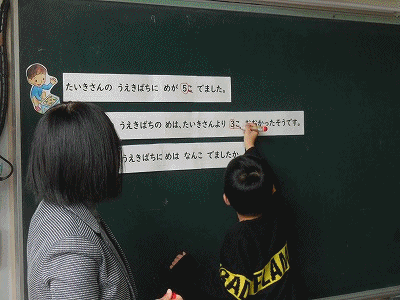 たいきさんの うえきばちに めが 5こ でました。
うえきばちの めは、たいきさんより 3こ おおかったそうです。
うえきばちに めは なんこ でましたか